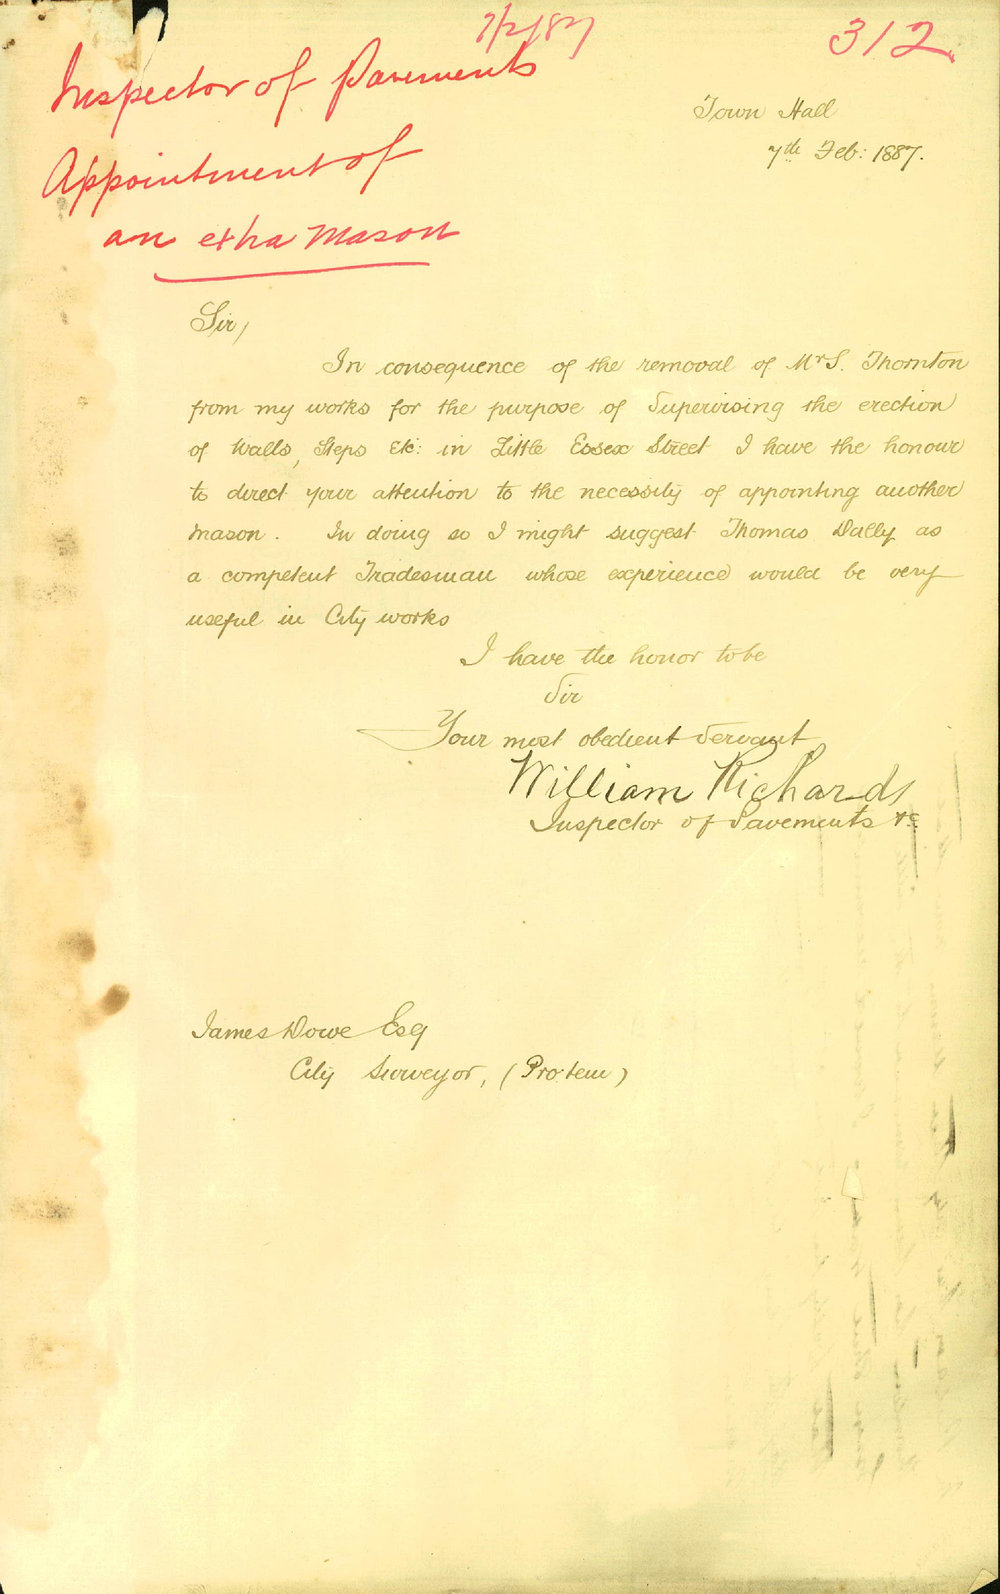 7/2/87
312
Inspector of Pavements
Appointment of
an extra Mason
Town Hall
7th Feb: 1887.
Sir,
In consequence of the removal of Mr S. Thornton
from my works for the purpose of Supervising the erection
of Walls, Steps Etc: in Little Essex Street I have the honour
to direct your attention to the necessity of appointing another
Mason. In doing so I might suggest Thomas Dally as
a competent Tradesman whose experience would be very
useful in City works
I have the honor to be
Sir
Your most obedient Servant
William Richards
Inspector of Pavements &c
James Dowe Esq
City Surveyor, (Pro: tem)